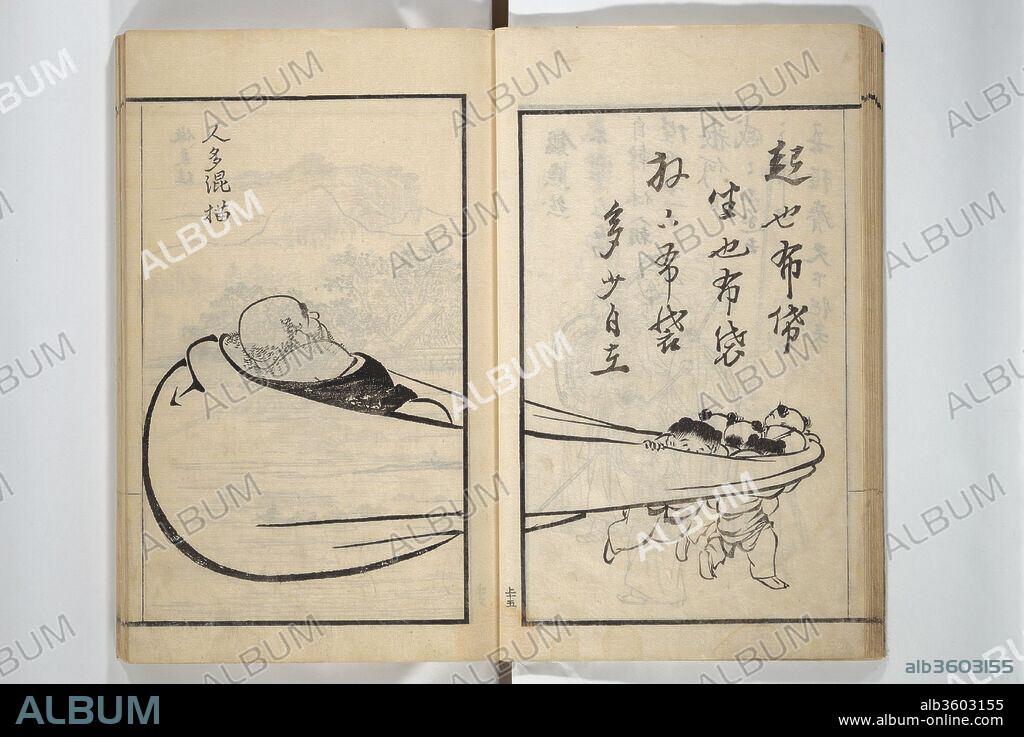 起也布袋
坐也布袋
放下布袋
多少自在
人多混描
上十五
ALBUM
alb3603155
ALBUM
alb3603155
www.album-online.com